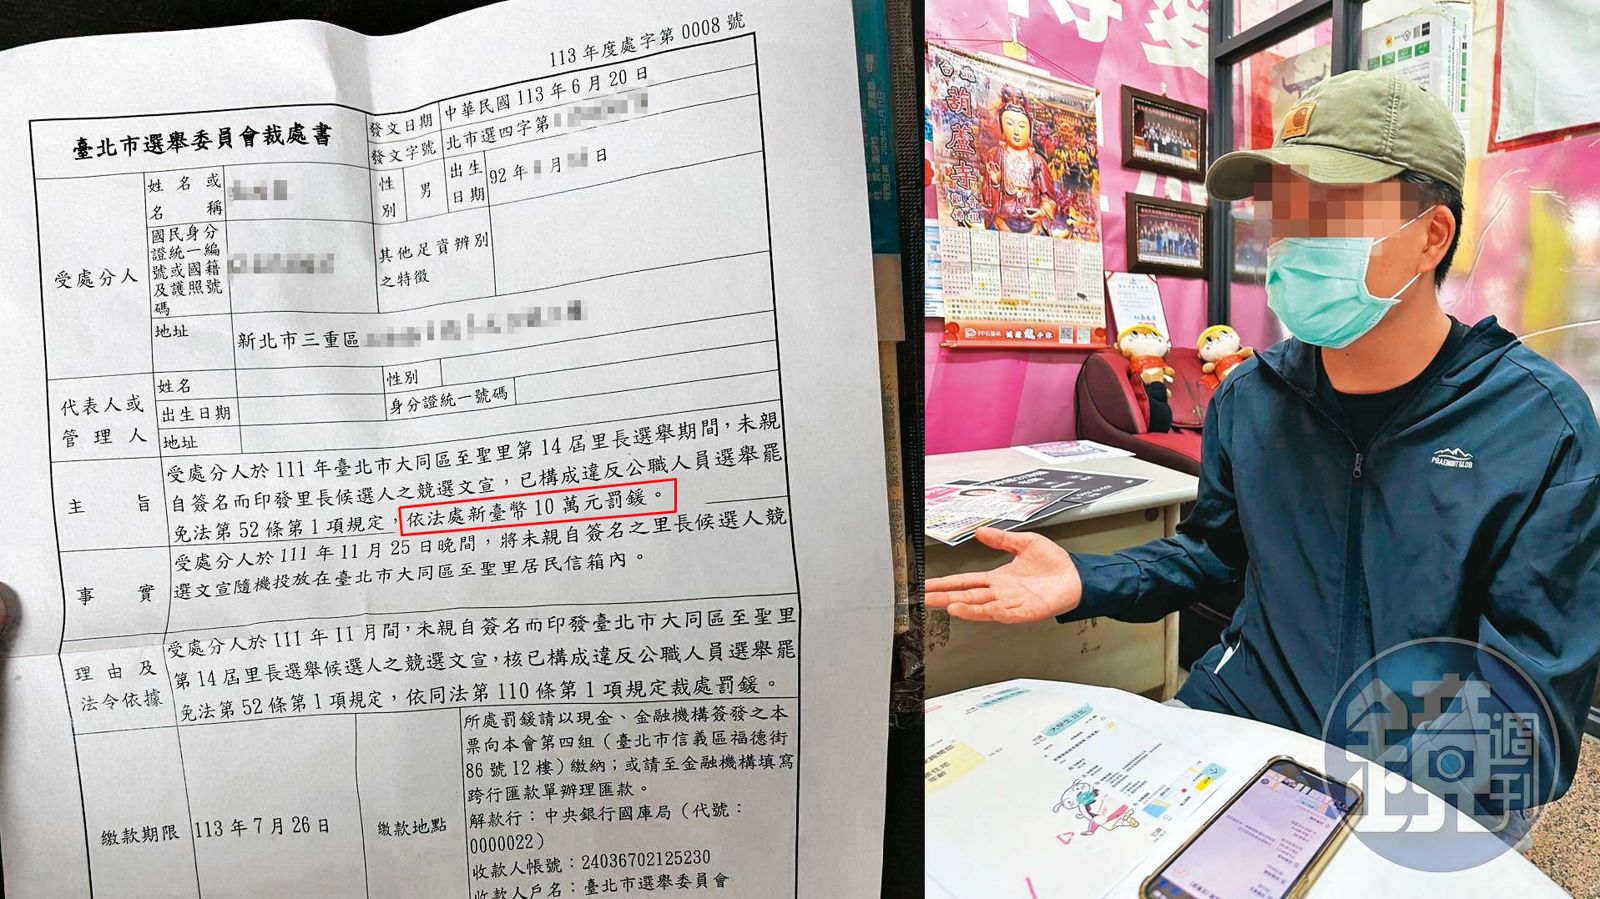 113年度處字第0008號
臺北市選舉委員會裁處書
發文日期
中華民國113年6月20日
發文字號
北市選四字第
受處分人
姓名或
名稱
性別
男
出生
日期
92年
月
日
國民身分
證統一編
號或國籍
及護照號
碼
其他足資辨別
之特徵
地址
新北市三重區
代表人或
管理人
姓名
性別
出生日期
身分證統一號碼
地址
主旨
受處分人於111年臺北市大同區至聖里第14屆里長選舉期間，未親
自簽名而印發里長候選人之競選文宣，已構成違反公職人員選舉罷
免法第52條第1項規定，依法處新臺幣10萬元罰鍰。
事實
受處分人於111年11月25日晚間，將未親自簽名之里長候選人競
選文宣隨機投放在臺北市大同區至聖里居民信箱內。
理由及
法令依據
受處分人於111年11月間，未親自簽名而印發臺北市大同區至聖里
第14屆里長選舉候選人之競選文宣，核已構成違反公職人員選舉罷
免法第52條第1項規定，依同法第110條第1項規定裁處罰鍰。
繳款期限
113年7月26日
繳款地點
所處罰鍰請以現金、金融機構簽發之本
票向本會第四組（臺北市信義區福德街
86號12樓）繳納；或請至金融機構填寫
跨行匯款單辦理匯款。
解款行：中央銀行國庫局（代號：
0000022）
收款人帳號：24036702125230
收款人戶名：臺北市選舉委員會
台北
葫蘆寺
Carhartt
鏡週刊